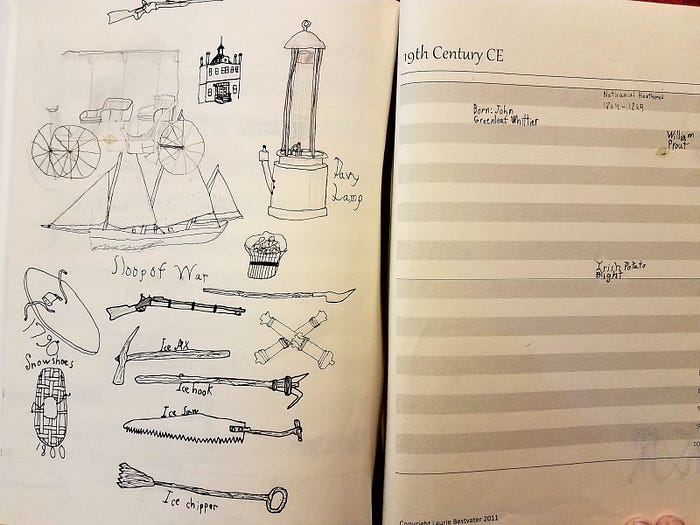 Davy
Lamp
Sloop of War
Snowshoes
Ice Ax
Ice hook
Ice Saw
Ice chipper
19th Century CE
Born: John
Greenleaf Whittier
William
Prout
Irish Potato
Blight
9
10
Copyright Laurie Bestvater 2011